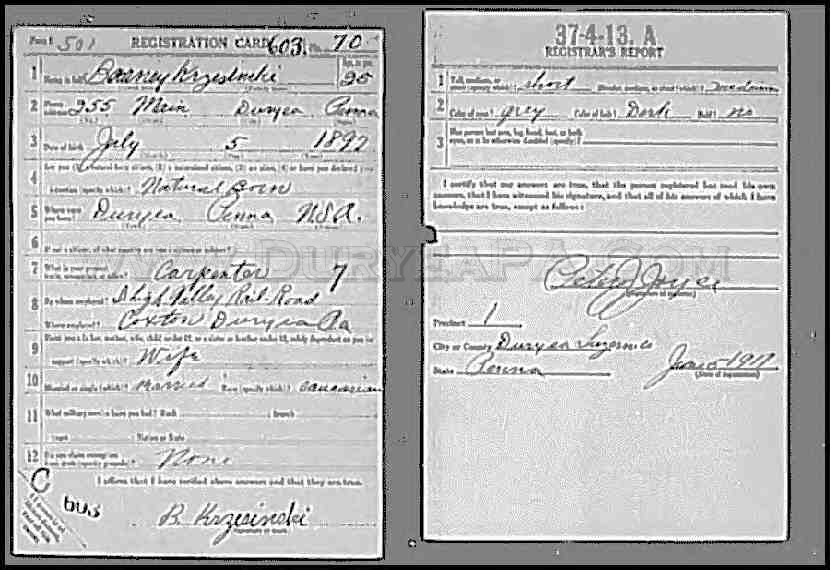 Form 1 501 REGISTRATION CARD 603. No. 70
1 Name in full Barney Krzesinski Age, in yrs. 25
2 Home address 255 Main Duryea Penna
3 Date of birth July 5 1892
4 Are you (1) a natural born citizen, (2) a naturalized citizen, (3) an alien, (4) or have you declared your
intention (specify which)? Natural Born
5 Where were you born? Duryea Penna U.S.A.
6 If not a citizen, of what country are you a citizen or subject?
7 What is your present trade, occupation, or office? Carpenter 7
8 By whom employed? Lehigh Valley Rail Road
Where employed? Coxton Duryea Pa
9 Have you a father, mother, wife, child under 12, or a sister or brother under 12, solely dependent on you for
support (specify which)? Wife
10 Married or single (which)? married Race (specify which)? Caucasian
11 What military service have you had? Rank branch
years Nation or State
12 Do you claim exemption from draft (specify grounds)? None
I affirm that I have verified above answers and that they are true.
C 603
B. Krzesinski
(Signature or mark)
37-4-13. A
REGISTRAR'S REPORT
1 Tall, medium, or short (specify which)? short Slender, medium, or stout (which)? medium
2 Color of eyes? grey Color of hair? Dark Bald? no
3 Has person lost arm, leg, hand, foot, or both
eyes, or is he otherwise disabled (specify)?
I certify that my answers are true, that the person registered has read his own
answers, that I have witnessed his signature, and that all of his answers of which I have
knowledge are true, except as follows:
WWW.DURYEAPA.COM
Peter J Joyce
(Signature of registrar)
Precinct 1
City or County Duryea Luzerne Co
State Penna June 5 1917
(Date of registration)